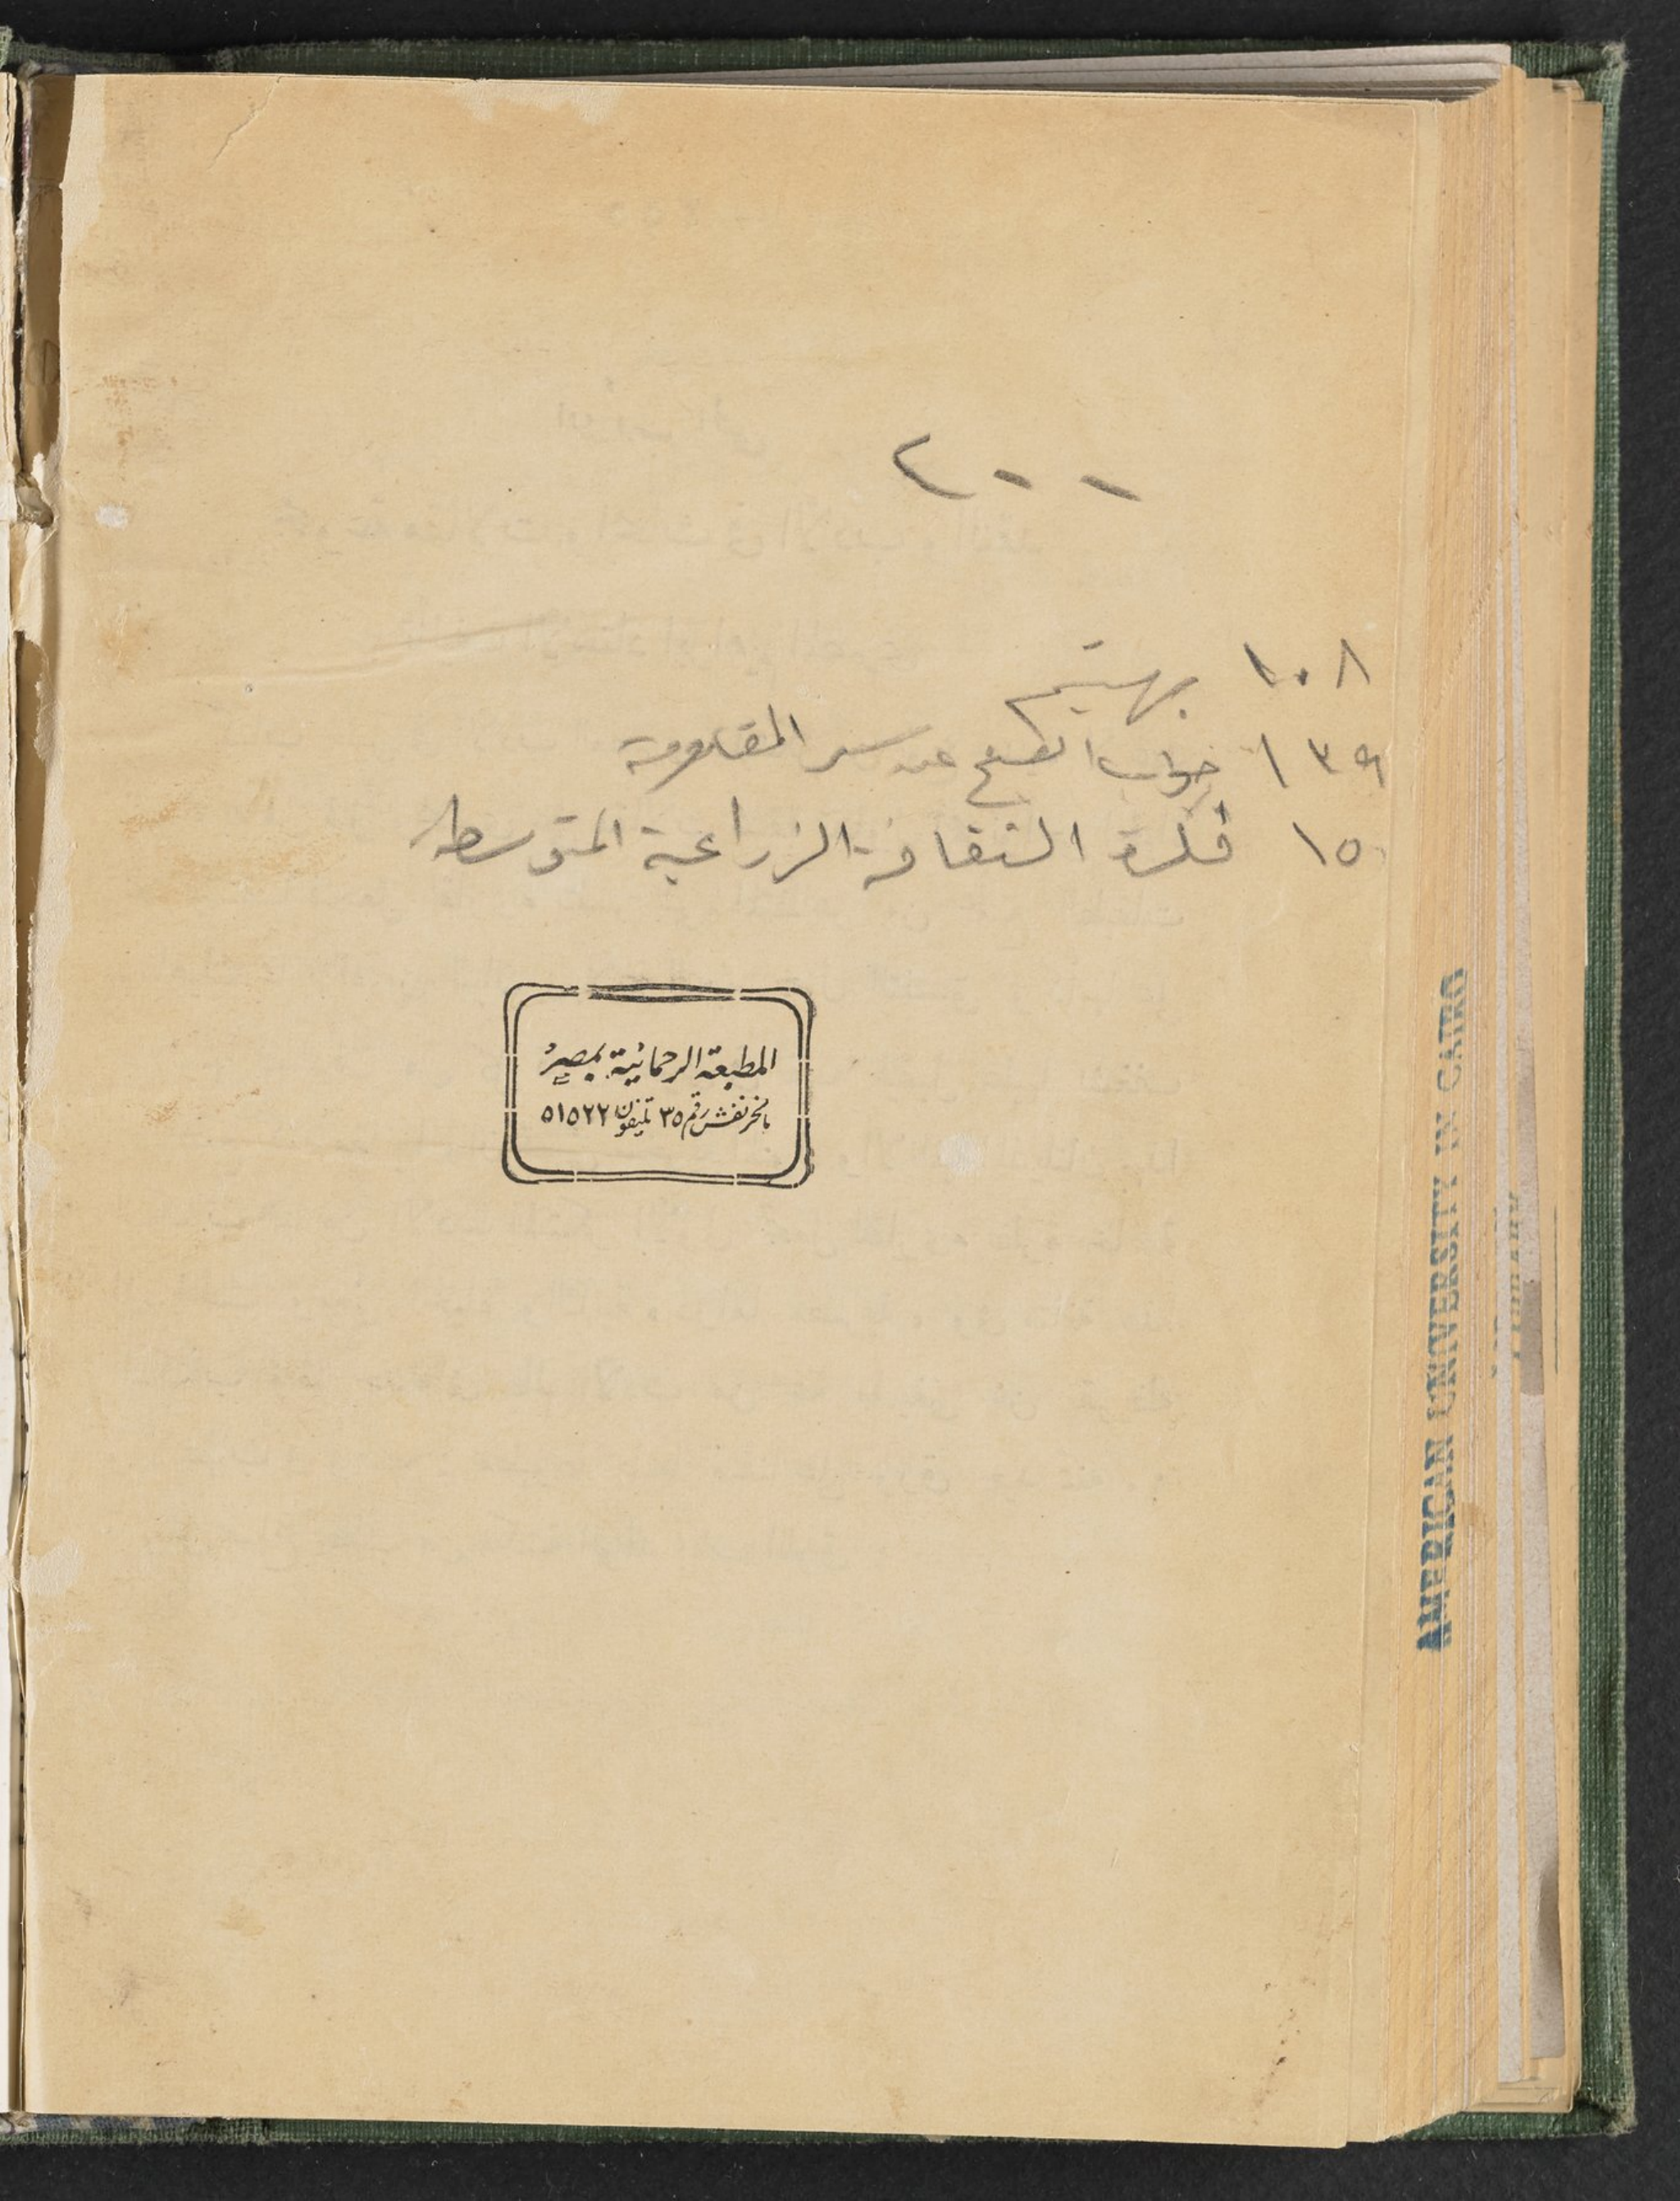 ١٠٨ بهتيم
١٣٩ جواب القمح عن سر المقاومة
١٥ فكرة الثقافة الزراعية المتوسطة
المطبعة الرحمانية بمصر
بالخرنفش رقم ٣٥ تليفون ٥١٥٢٢
AMERICAN UNIVERSITY IN CAIRO
LIBRARY